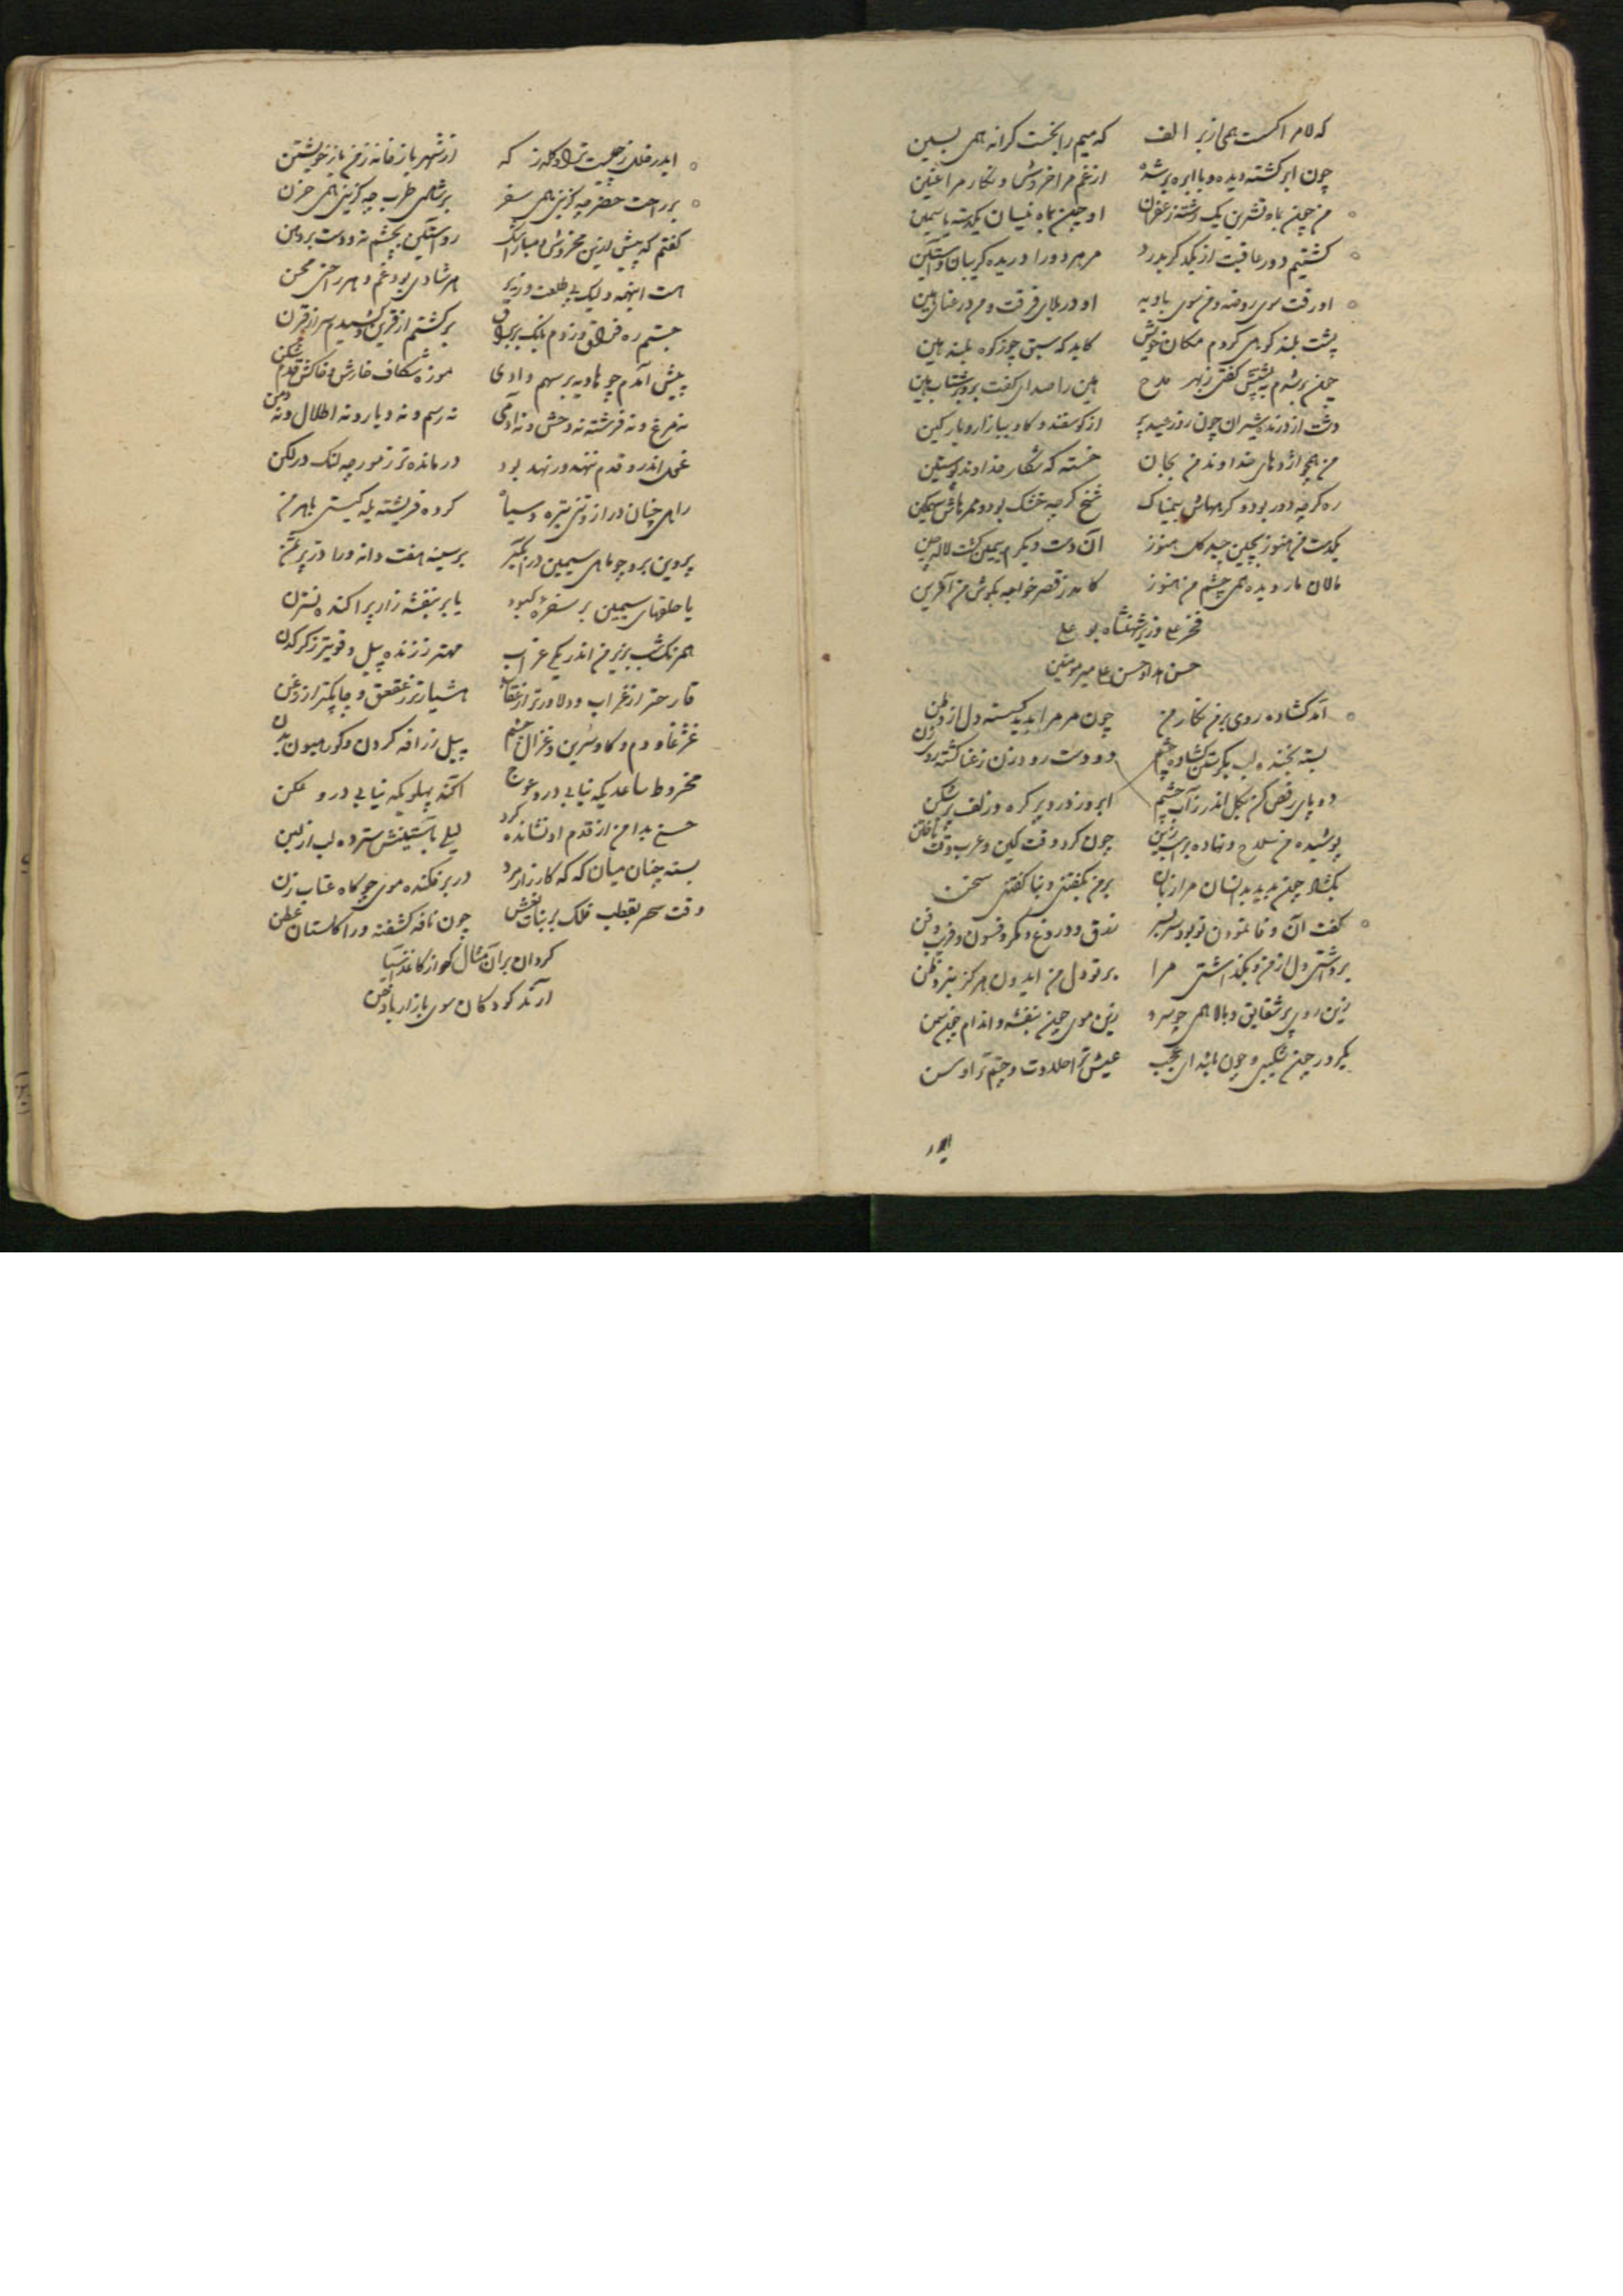 که لام اکست همی از بر الف که میم را بخست کرانه همی بسین
چون ابر کشته دیده و با ابر بر شده از غم مرا خروش و نکار مرا غنین
من چون بماه تشرین یک رشته زعفران او چون بماه نیسان یکدسته یاسمین
کشتیم دور عاقبت از یکدکر بدرد مر هر دو را دریده کریبان و آستین
او رفت سوی روضه و من سوی بادیه او در بلای فرقت و من در عنای بین
پشت بلند کوهی کردم مکان خویش کاید که سبق چو زکوه بلند هین
چون بر شدم به پشتش کفتی ز بهر مدح هین را صدای کفت برو بر شتاب هین
دشت از درنده شیران چون روز عید پر از کوسفند و کاو ببازار و پارکین
من همچو اژدهای خداوند من بجان خسته که شکار خداوند پوستین
ره کرچه دور بود و کرمهاش بیمناک شخ کرچه خشک بود و ممرهاش سهمکین
یکدست من هنوز بچین چیه کل هنوز آن دست دیکرم یمین کشت لاله چین
مالان مار دیده همی چشم من هنوز کامد ز قصر خواجه بکوش من آفرین
فخر علی وزیر شهنشاه بو علی
حسن امداد حسن علی میر مومنین
آمد کشاده روی بر من نکار من چون مر مرا بدید کسسته دل از وطن
بسته بخنده لب بکرستن کشاده چشم دو دست رود زن ز عنا کشته روی زن
دو پای رقص کن بکل اندر ز آب چشم ابرو ز درد پر کره و زلف پر شکن
پوشیده من سلاح و نهاده بر اسب زین چون کرد وقت کین و عرب وقت تاختن
بکشاد چون بدید بدانسان مرا زبان بر من بکفتنی و بنا کفتنی سخن
کفت آن وفا نمودن تو بود سر بسر زرق و دروغ و مکر و فسون و فریب و فن
برداشتی دل از من و بکذاشتی مرا بر تو دل من ایدون هرکز نبرد ظن
زین روی پر شقایق و بالا همی چو سرو زین موی چون بنفشه و اندام چون سمن
یکرو در چون شکیبی و چون باشد ای عجب عیش ترا حلاوت و چشم ترا وسن
ایدر
ایدر خلل ز چیست ترا و کله ز که از شهر یا ز خانه ز من یا ز خویشتن
بر راحت حضر چه کزینی همی سفر بر شاهی طرب چه کزینی همی حزن
کفتم که پیش ازین مخروش و مبار اشک رو آستین بچشم نه و دست بر دهن
هست اینهمه ولیک بی طلعت وزیر هر شادی بود غم و هر راحتی محن
جستم ره فراق و زدم بانک بر براق بر کشتم از قرین و کشیدم سر از قرن
پیش آمدم چو هاویه پر سهم وادی موزه شکاف خارش و خاکش قدم شکن
نه مرغ و نه فرشته نه وحش و نه آدمی نه رسم و نه دیار و نه اطلال و نه دمن
غول اندرو قدم ننهد ور نهد بود درمانده تر ز مورچه لنک در لکن
راهی چنان دراز و شبی تیره و سیاه کرده فریشته یله کیتی باهرمن
پروین برو چو ماهی سیمین در آبکیر بر سینه هفت دانه ورا در بر ثمن
یا حلقهای سیمین بر سفره کبود یا بر بنفشه زار پراکنده نسترن
همرنک شب بزیر من اندر یکی غراب مهتر ز زنده پیل و قویتر ز کرکدن
قارحتر از غراب و دلاورتر از عقاب هشیارتر ز عقعق و چابکتر از زغن
غژغاو دم و کاو سرین و غزال چشم پیل زرافه کردن و کور هیون بدن
مخروط ساعدیکه نیابی درو عوج آکنده پهلویکه نیابی درو عکن
حسنی بدامن از قدم او نشانده کرد لیلی باستینش سترده لب از لبن
بسته چنان میان که که کارزار مرد در بر فکنده موی چو کاه عتاب زن
وقت سحر بقطب فلک بر بنات نعش چون نافه کشفته ورا کلستان عطن
کردان بر آن مثال که از کاغذ آسیا
آرند کودکان سوی بازار بادخن